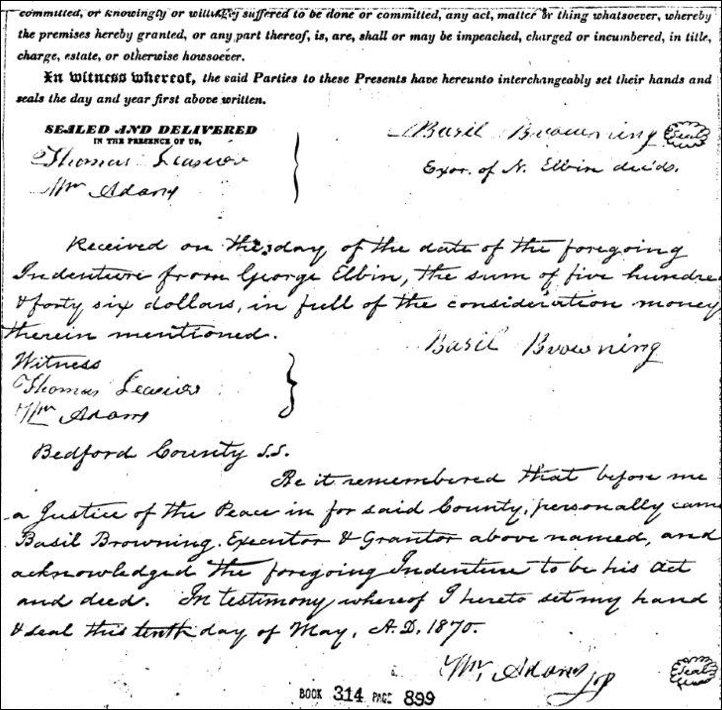 committed, or knowingly or willingly suffered to be done or committed, any act, matter or thing whatsoever, whereby
the premises hereby granted, or any part thereof, is, are, shall or may be impeached, charged or incumbered, in title,
charge, estate, or otherwise howsoever.
In witness whereof, the said Parties to these Presents have hereunto interchangeably set their hands and
seals the day and year first above written.
SEALED AND DELIVERED
IN THE PRESENCE OF US,
Thomas
Wm Adams
Basil Browning Seal
Exor. of N. Elbin decd.
Received on the day of the date of the foregoing
Indenture from George Elbin, the sum of five hundred
& forty six dollars, in full of the consideration money
therein mentioned.
Basil Browning
Witness
Thomas
Wm Adams
Bedford County S.S.
Be it remembered that before me
a Justice of the Peace in for said County, personally came
Basil Browning, Executor & Grantor above named, and
acknowledged the foregoing Indenture to be his act
and deed. In testimony whereof I hereto set my hand
& seal this tenth day of May, A.D. 1870.
Wm, Adams JP Seal
BOOK 314 PAGE 899